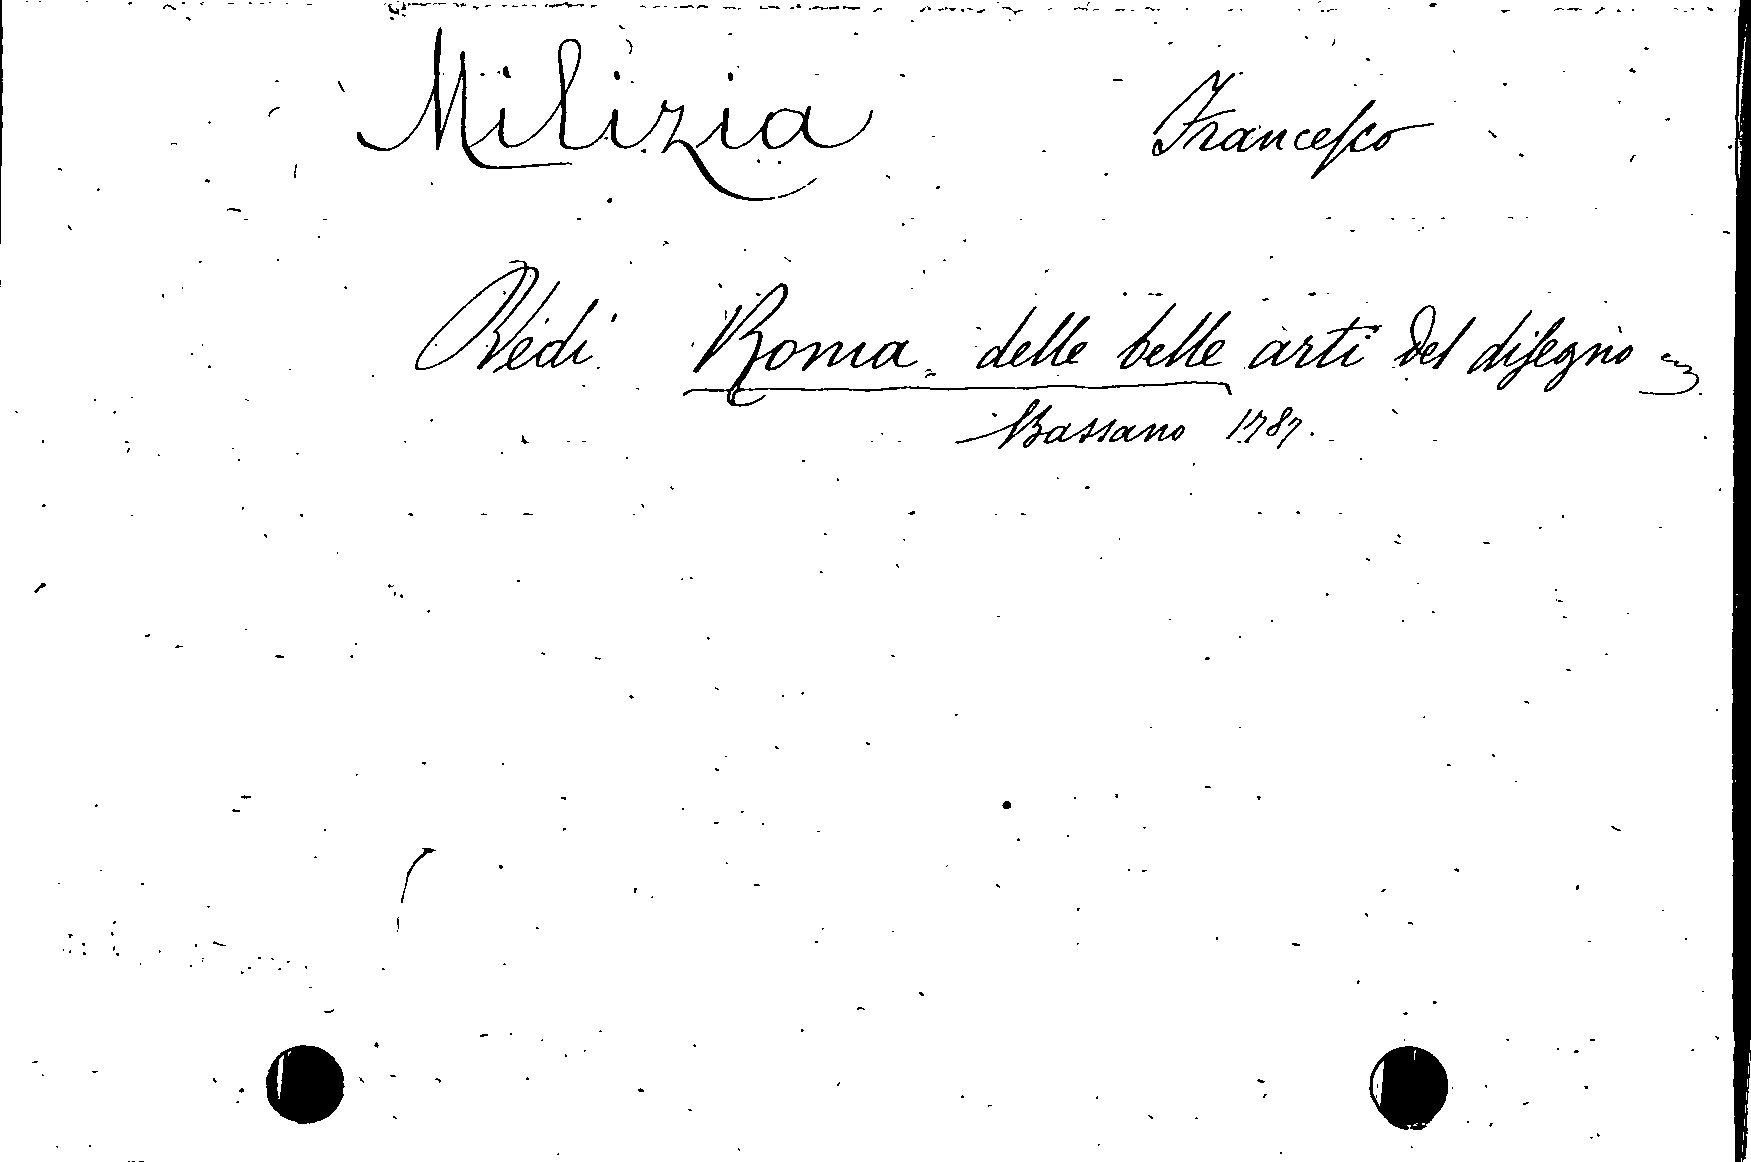 Milizia Francesco
Vedi Roma. delle belle arti del disegno
Bassano 1787.